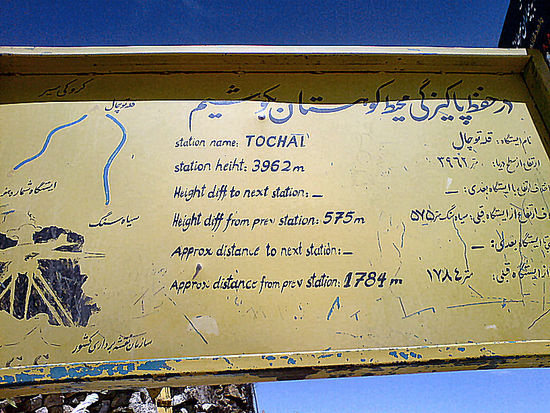 در حفظ پاکیزگی محیط کوهستان بکوشیم
کروکی مسیر
قله توچال
station name: TOCHAL
نام ایستگاه: قله توچال
station heiht: 3962 m
ارتفاع از سطح دریا: ۳۹۶۲ متر
Height diff to next station: _
ارتفاع با ایستگاه بعدی: _
ایستگاه شماره
Height diff from prev station: 575 m
ارتفاع از ایستگاه قبلی: سیاه سنگ ۵۷۵ متر
سیاه سنگ
Approx distance to next station: _
ایستگاه بعدی: _
Approx distance from prev station: 1784 m
ایستگاه قبلی: ۱۷۸۴ متر
سازمان نقشه برداری کشور